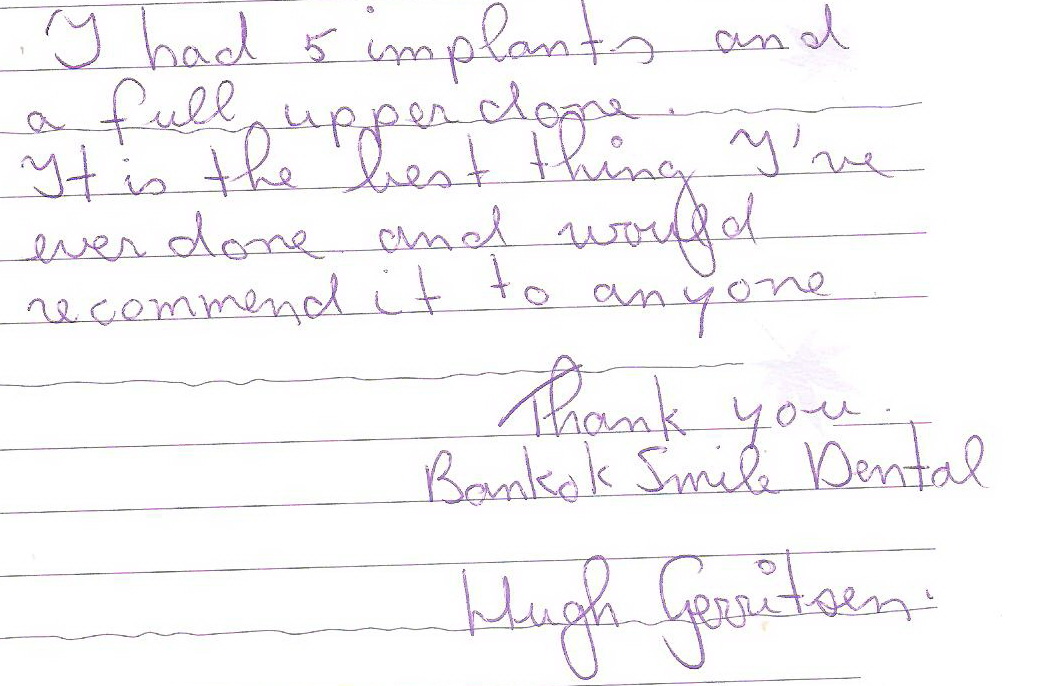 I had 5 implants and
a full upper done.
It is the best thing I've
ever done and would
recommend it to anyone
Thank you.
Bankok Smile Dental
Hugh Gerritsen.